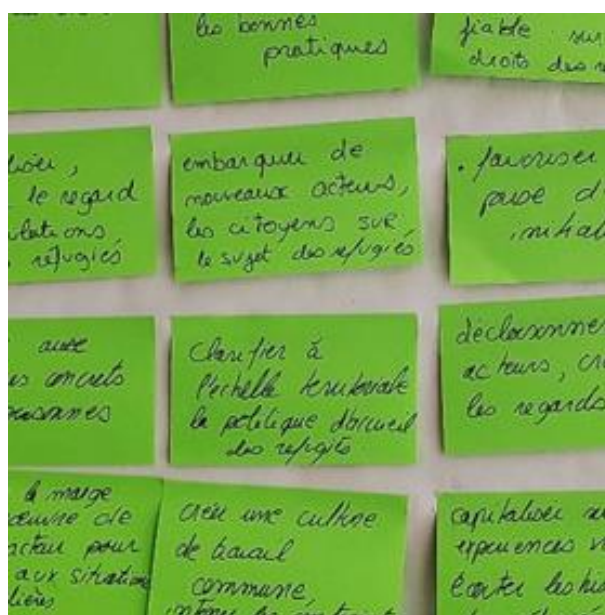 les bonnes
pratiques
fiable sur
droits des ré
le regard
réfugiés
embarquer de
nouveaux acteurs,
les citoyens sur
le sujet des réfugiés
. favoriser
prise d'
initiat
avec
concrets
personnes
Clarifier à
l'échelle territoriale
la politique d'accueil
des réfugiés
décloisonner
acteurs, cro
les regards
la marge
œuvre de
acteur pour
aux situations
lières
créer une culture
de travail
commune,
capitaliser su
experiences